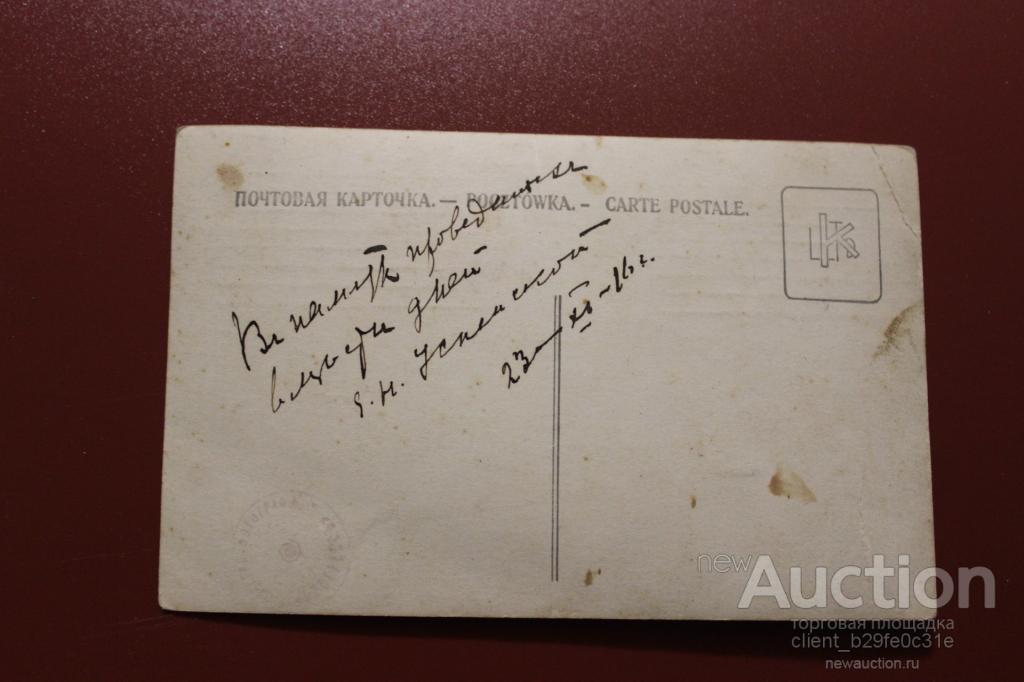 ПОЧТОВАЯ КАРТОЧКА. — POCZTÓWKA. – CARTE POSTALE.
Въ память проведенныхъ
вместе дней
Успенской
23 – XII – 16 г.
newAuction
торговая площадка
client_b29fe0c31e
newauction.ru